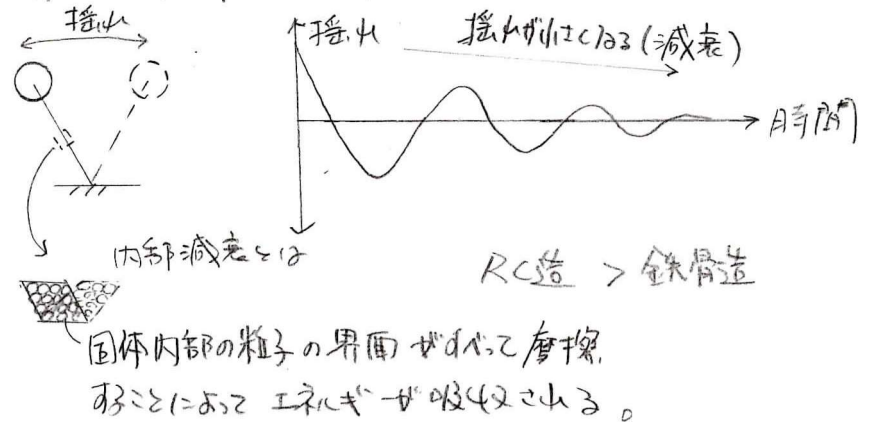 揺れ
揺れ
揺れが小さくなる(減衰)
時間
内部減衰とは
RC造 > 鉄骨造
固体内部の粒子の界面がすべって摩擦
することによってエネルギーが吸収される。